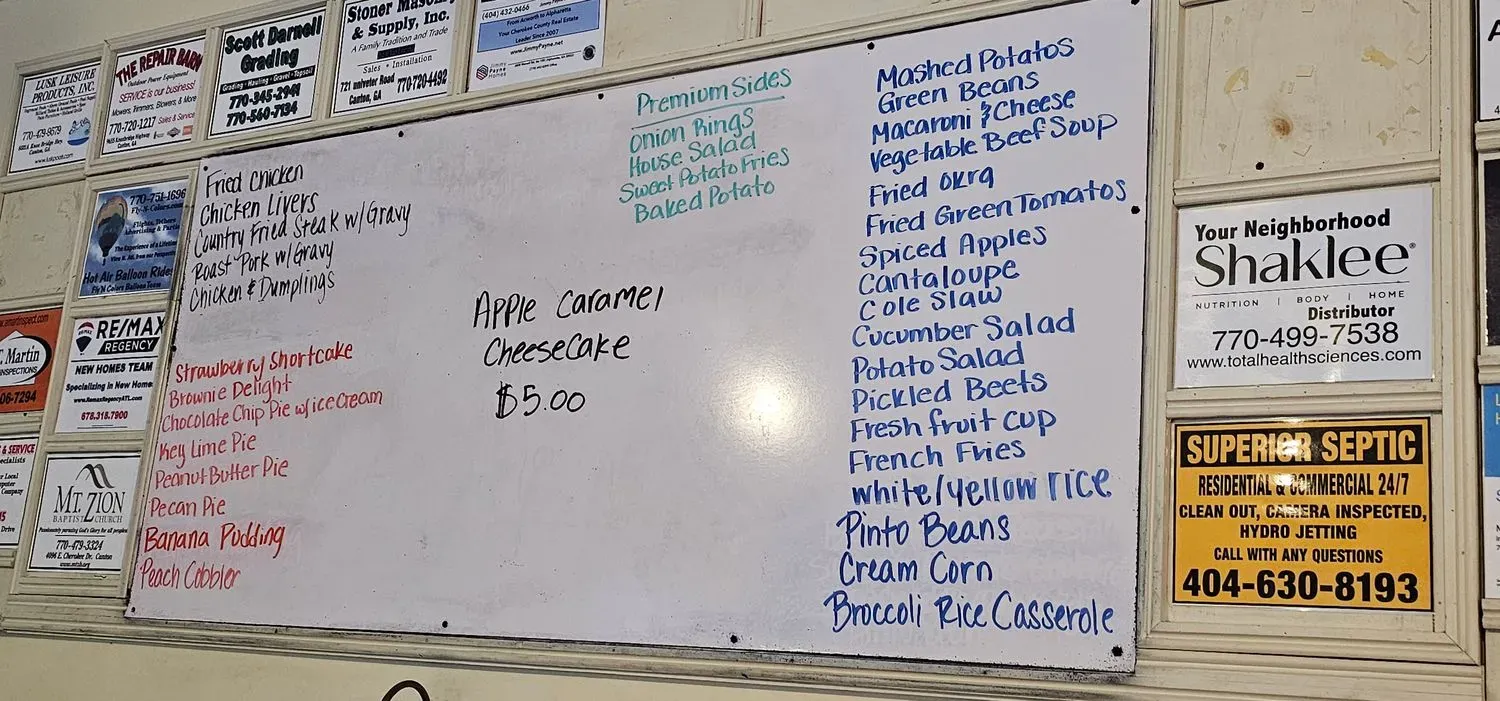 LUSK LEISURE
PRODUCTS, INC.
770-479-9579
Canton, GA
THE REPAIR BARN
Outdoor Power Equipment
SERVICE is our business!
Mowers, Trimmers, Blowers, & More
770-720-1217 Sales & Service
Canton, GA
Scott Darnell
Grading
Grading • Hauling • Gravel • Topsoil
770-345-2961
770-560-7134
Stoner Masonry
& Supply, Inc.
A Family Tradition and Trade
Sales • Installation
721 univeter Road 770-720-4492
Canton, GA
(404) 432-0466
From Acworth to Alpharetta
Your Cherokee County Real Estate
Leader Since 2007
www.JimmyPayne.net
Jimmy
Payne
Homes
770-751-1696
Fly-N-Colors.com
Flights, Tethers
Advertising &
The Experience of a Lifetime
Hot Air Balloon Rides
Fly'N Colors Balloon Team
Martin
INSPECTIONS
06-7294
RE/MAX
REGENCY
NEW HOMES TEAM
Specializing in New Homes
www.RemaxRegencyATL.com
678.318.7900
& SERVICE
Company
Drive
MT. ZION
BAPTIST CHURCH
Passionately pursuing God's Glory for all peoples
770-479-3324
4096 E. Cherokee Dr. Canton
www.mtzb.org
Fried Chicken
Chicken Livers
Country Fried Steak w/Gravy
Roast Pork w/Gravy
Chicken & Dumplings
Strawberry Shortcake
Brownie Delight
Chocolate Chip Pie w/ice Cream
Key Lime Pie
Peanut Butter Pie
Pecan Pie
Banana Pudding
Peach Cobbler
Apple Caramel
Cheesecake
$5.00
Premium Sides
Onion Rings
House Salad
Sweet Potato Fries
Baked Potato
Mashed Potatos
Green Beans
Macaroni & Cheese
Vegetable Beef Soup
Fried Okra
Fried Green Tomatos
Spiced Apples
Cantaloupe
Cole Slaw
Cucumber Salad
Potato Salad
Pickled Beets
Fresh fruit cup
French Fries
white/yellow rice
Pinto Beans
Cream Corn
Broccoli Rice Casserole
Your Neighborhood
Shaklee®
NUTRITION | BODY | HOME
Distributor
770-499-7538
www.totalhealthsciences.com
SUPERIOR SEPTIC
RESIDENTIAL & COMMERCIAL 24/7
CLEAN OUT, CAMERA INSPECTED,
HYDRO JETTING
CALL WITH ANY QUESTIONS
404-630-8193